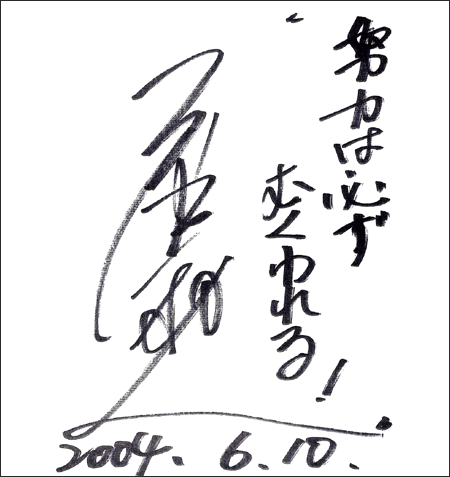 努力は必ず
むくわれる!
2004. 6. 10.